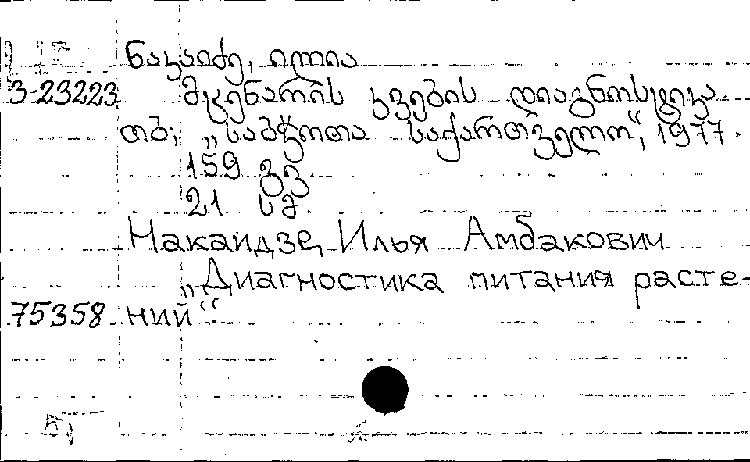 ნაკაიძე, ილია
3-23223 მცენარის კვების დიაგნოსტიკა
თბ; „საბჭოთა საქართველო“, 1977.
159 გვ
21 სმ
Накаидзе, Илья Амбакович
„Диагностика питания расте-
75358 ний“